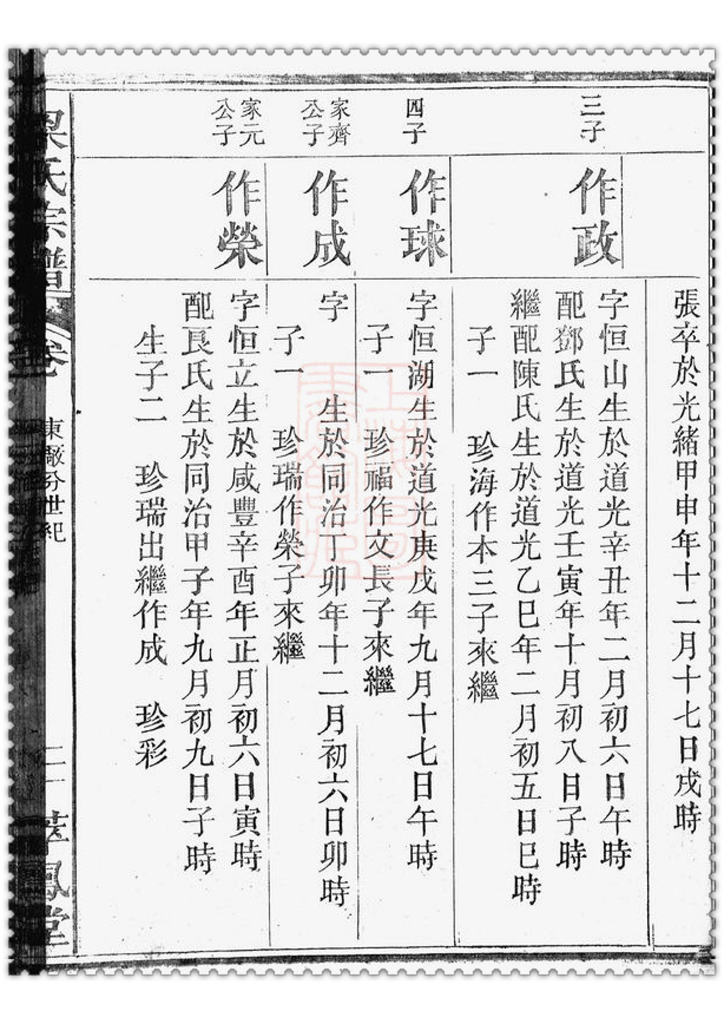 張卒於光緒甲申年十二月十七日戌時
三子
作政
字恒山生於道光辛丑年二月初六日午時
配鄧氏生於道光壬寅年十月初八日子時
繼配陳氏生於道光乙巳年二月初五日巳時
子一 珍海作本三子來繼
四子
作球
字恒湖生於道光庚戌年九月十七日午時
子一 珍福作文長子來繼
家齊
公子
作成
字 生於同治丁卯年十二月初六日卯時
子一 珍瑞作榮子來繼
家元
公子
作榮
字恒立生於咸豐辛酉年正月初六日寅時
配艮氏生於同治甲子年九月初九日子時
生子二 珍瑞出繼作成 珍彩
氏宗譜
卷
東 分世紀
鳳堂